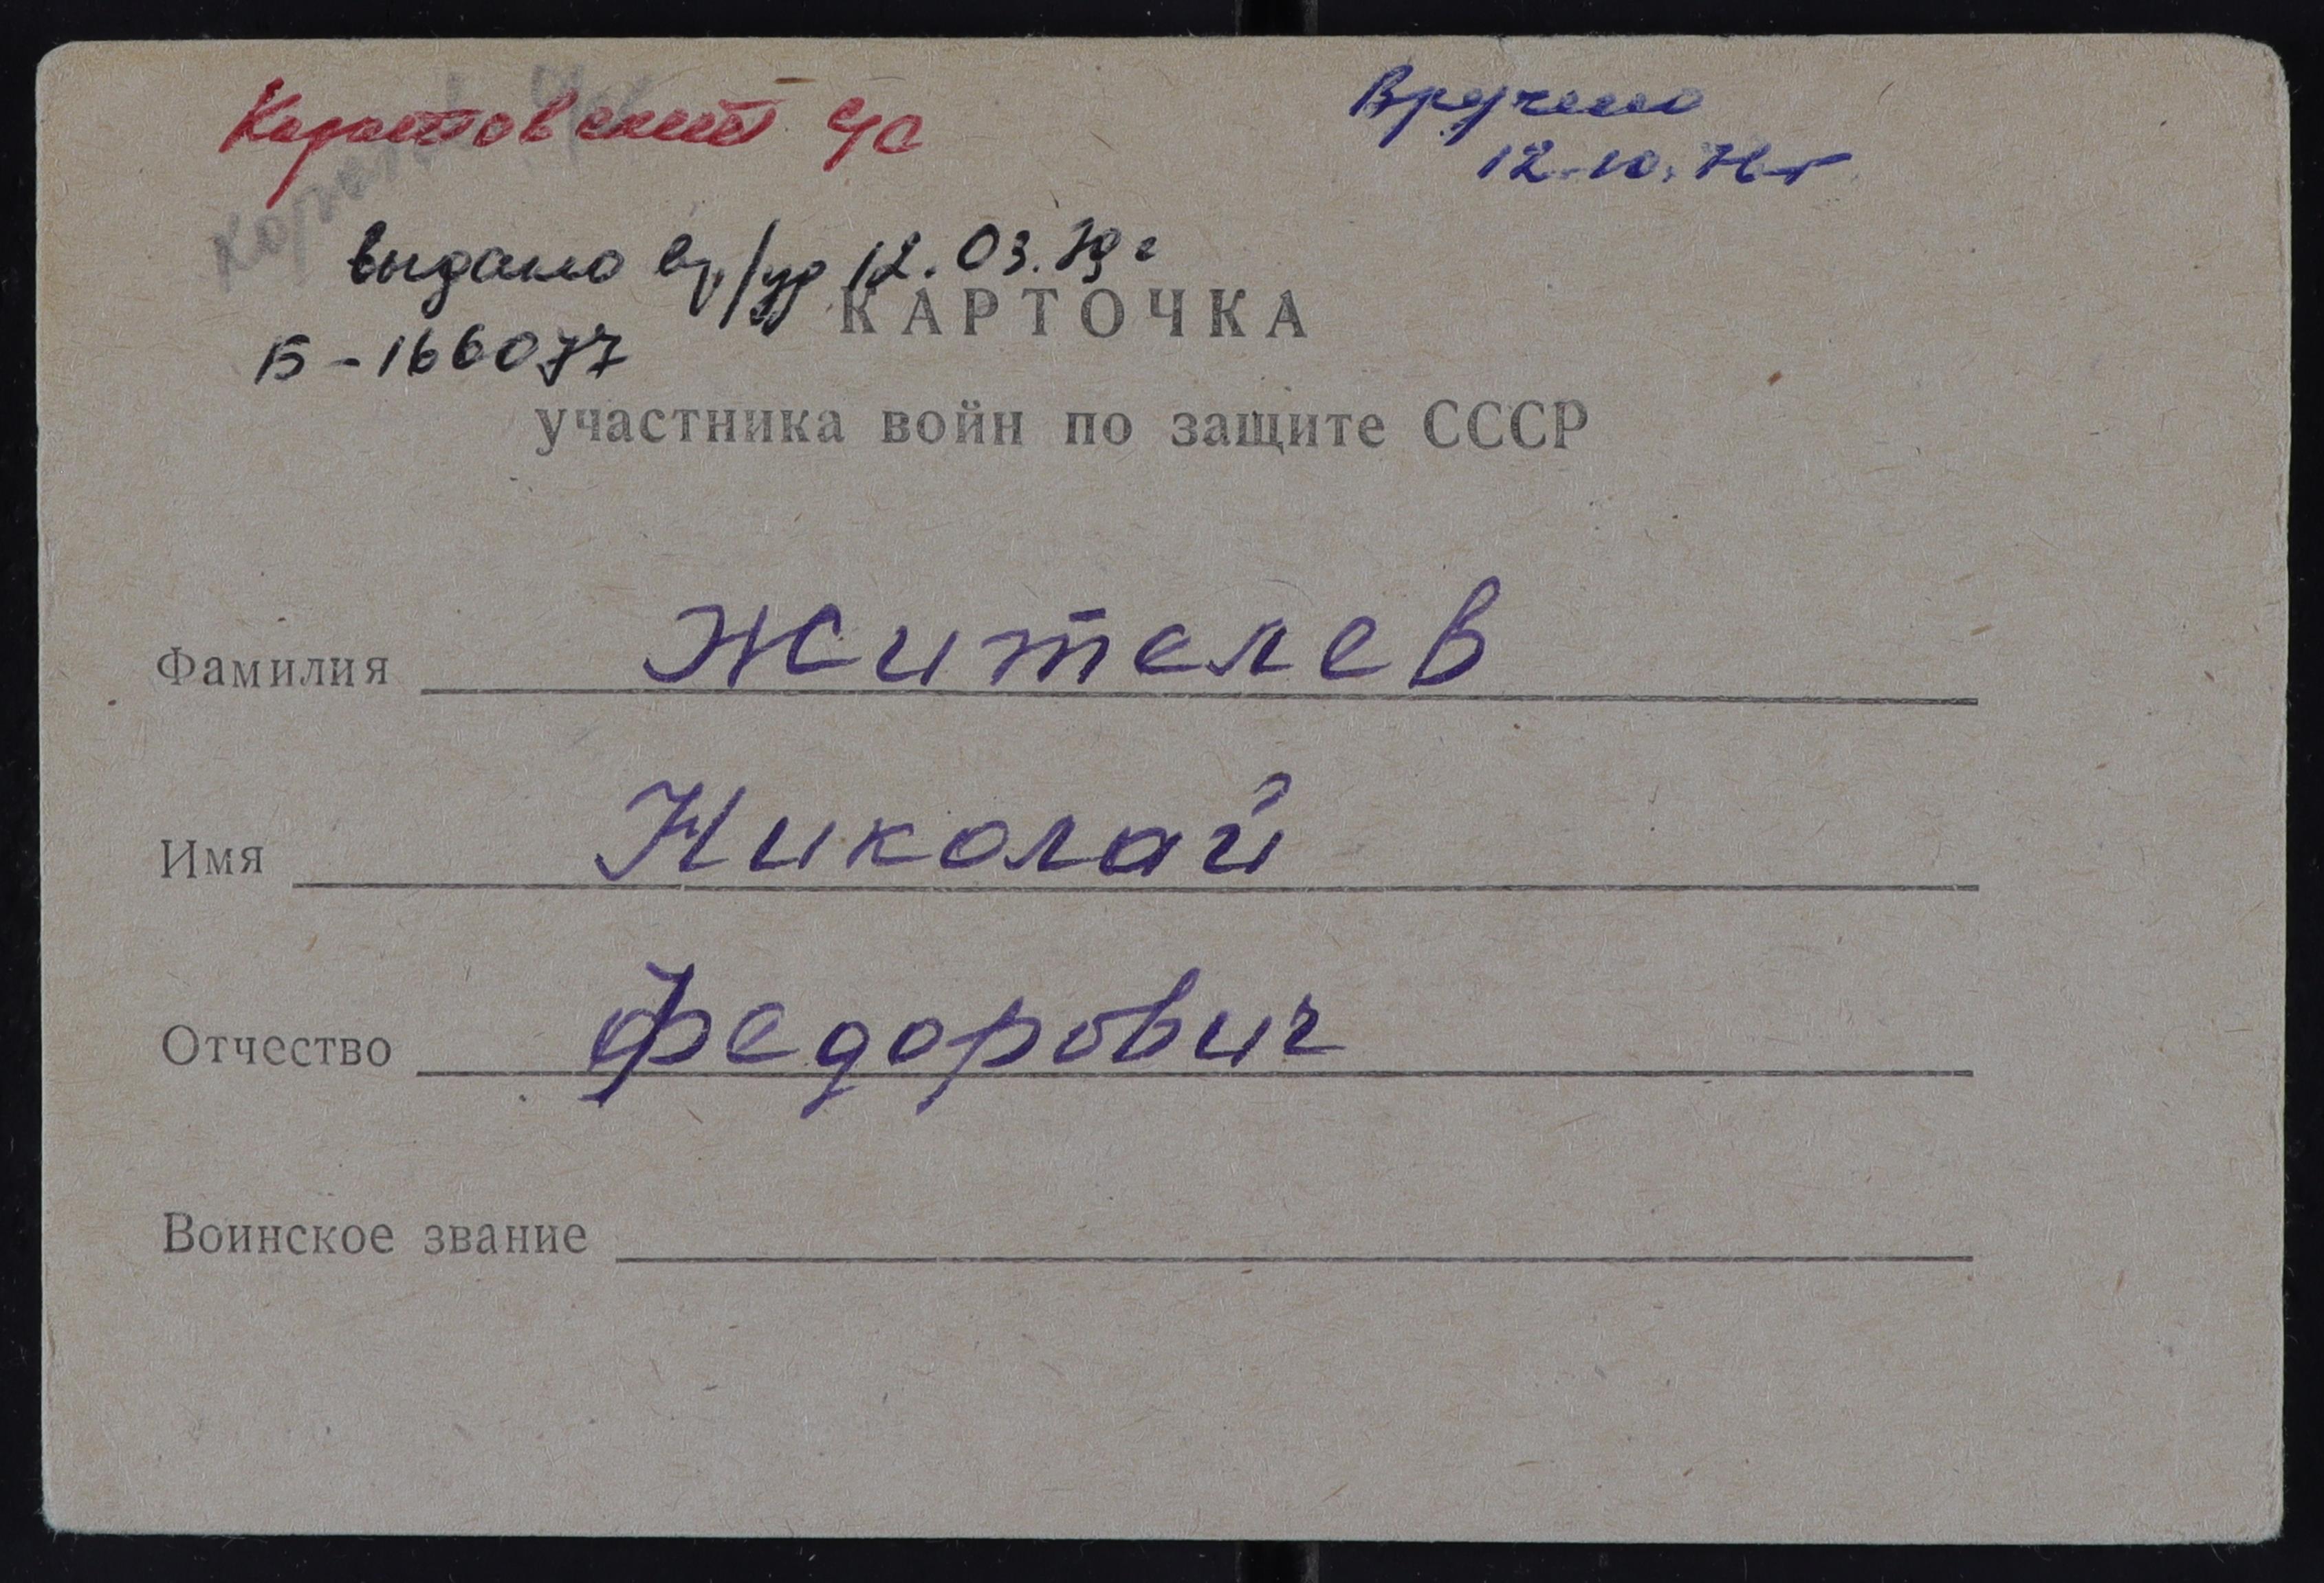 с/с
Вручено
12.10.76г
выдано 12.03.79г
Б-166077
КАРТОЧКА
участника войн по защите СССР
Фамилия Жителев
Имя Николай
Отчество Федорович
Воинское звание